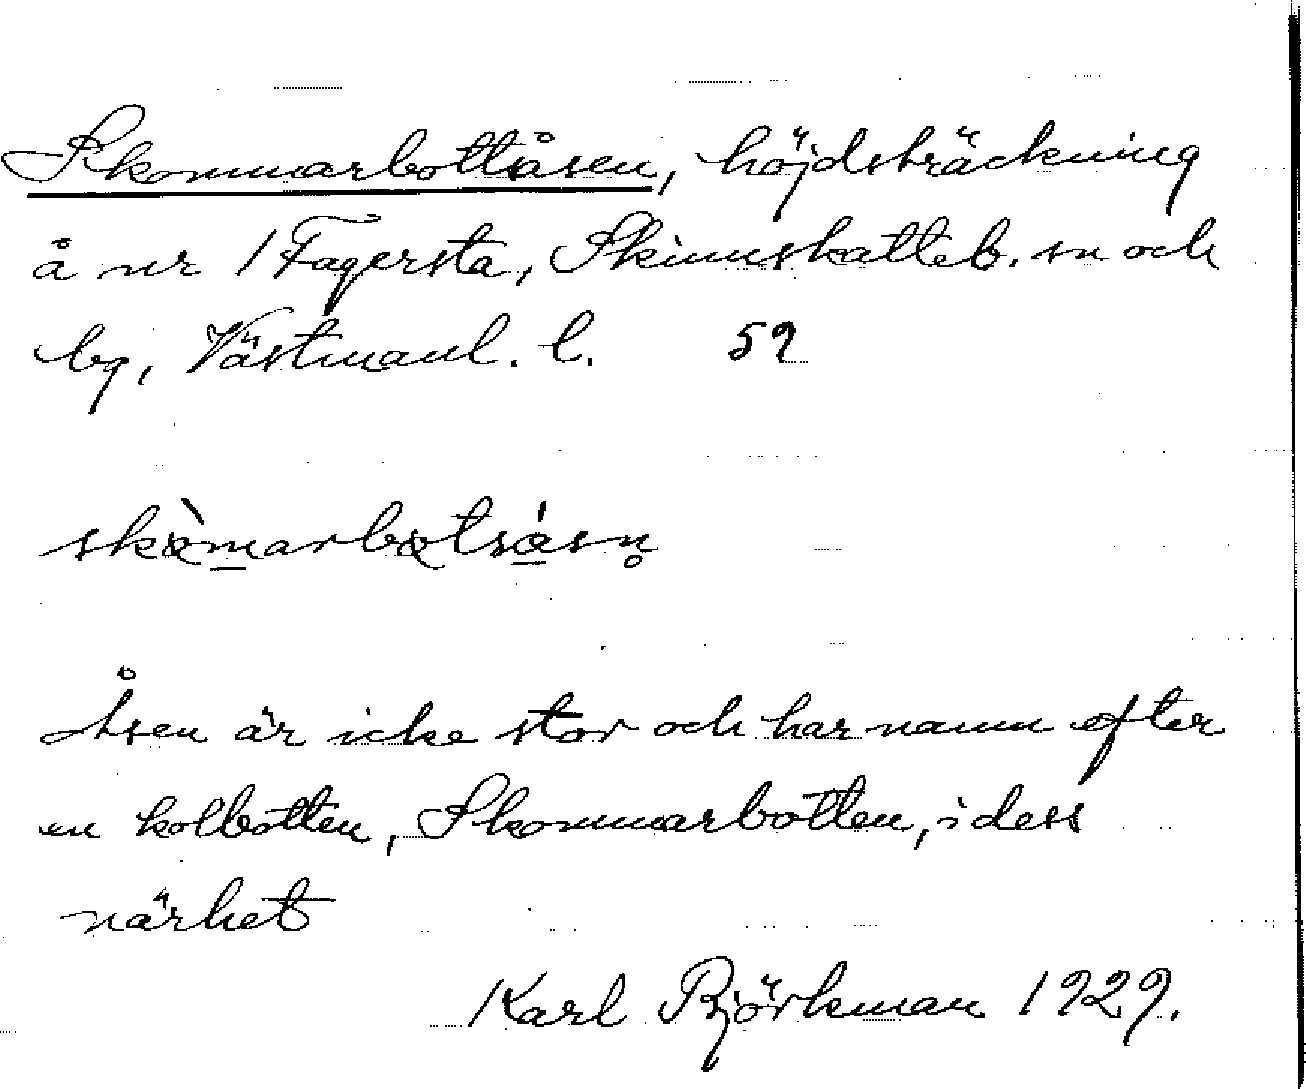 Skommarbottsåsen, höjdsträckning
å nr 1 Fagersta, Skinnskatteb. sn och
bg, Västmanl. l. 59
skòmarbotsåsn̥
Åsen är icke stor och har namn efter
en kolbotten, Skommarbotten, i dess
närhet
Karl Björkman 1929.